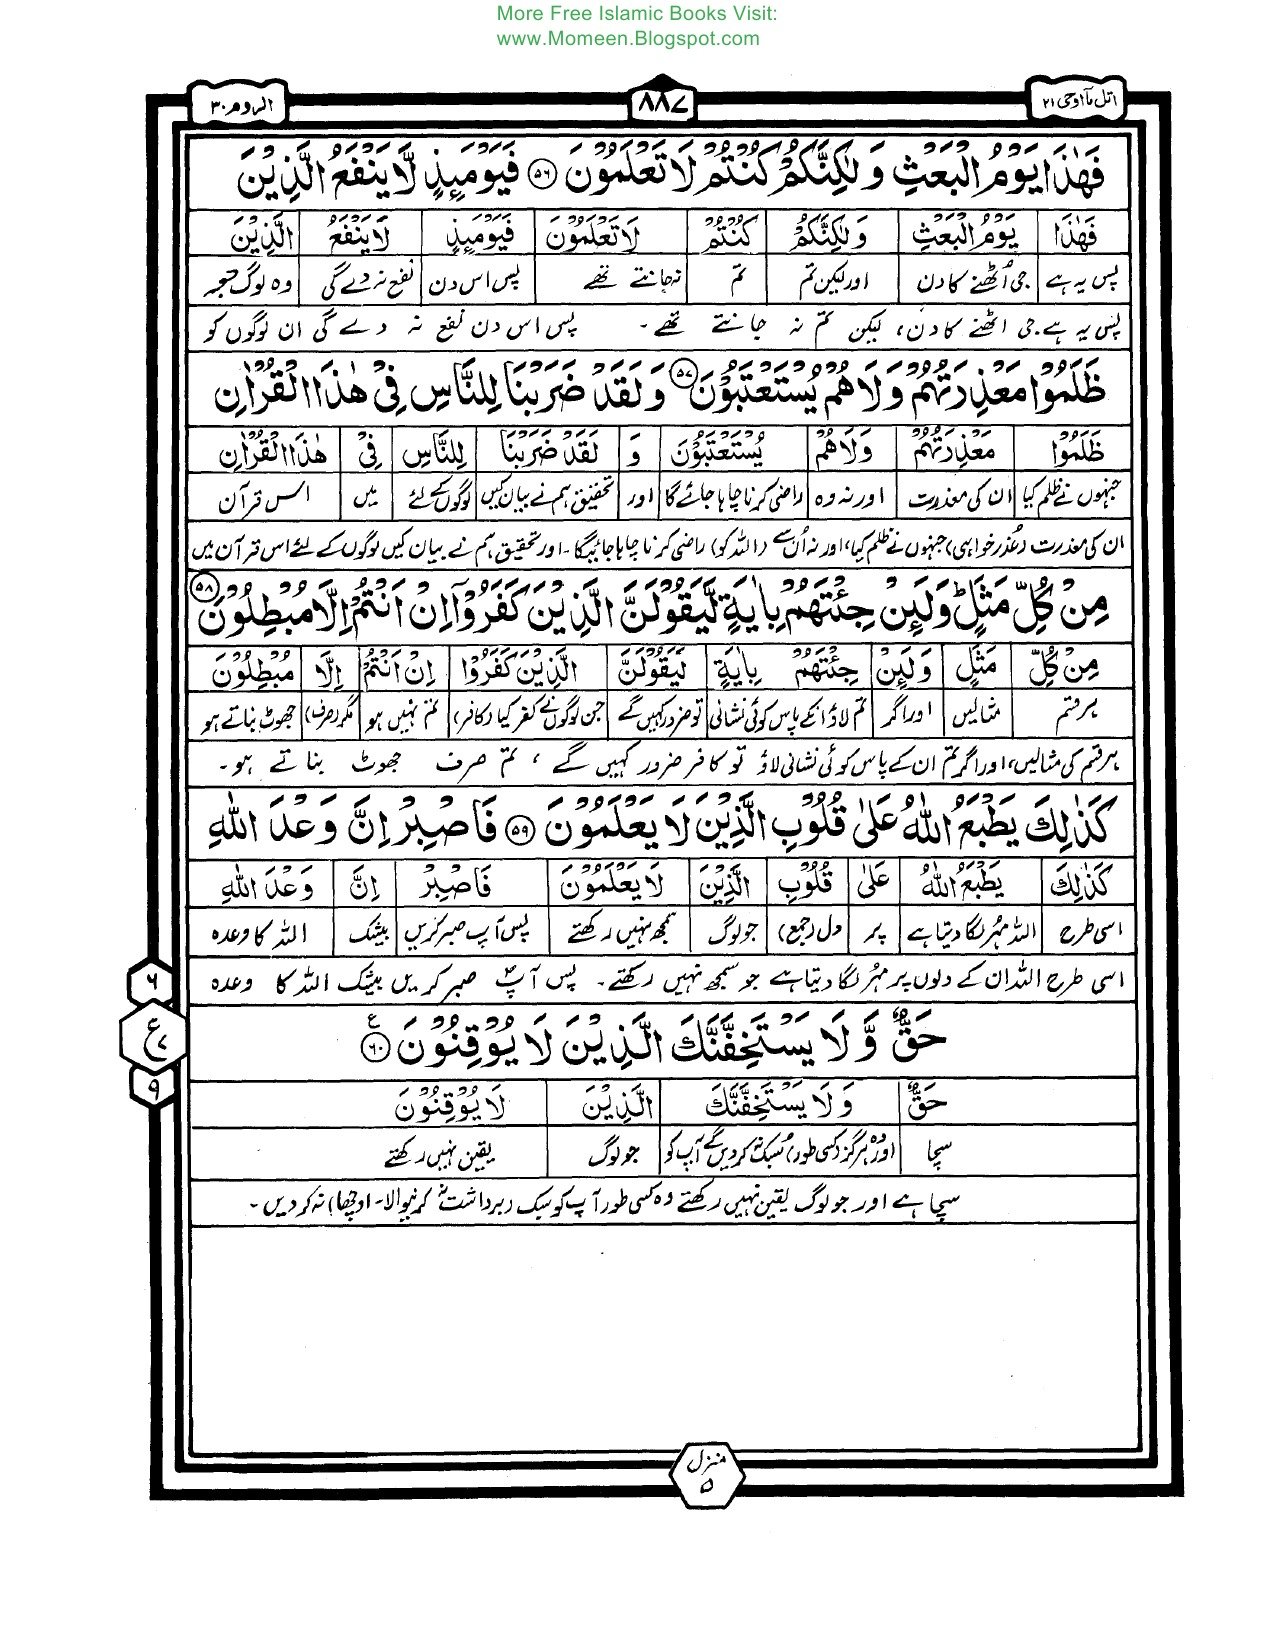 More Free Islamic Books Visit:
www.Momeen.Blogspot.com
اتل مآ اوحی ۲۱
۸۸۷
الروم ۳۰
فَهٰذَا يَوْمُ الْبَعْثِ وَلٰكِنَّكُمْ كُنْتُمْ لَا تَعْلَمُوْنَ ۵۶ فَيَوْمَىِٕذٍ لَّا يَنْفَعُ الَّذِيْنَ
فَهٰذَا يَوْمُ الْبَعْثِ وَلٰكِنَّكُمْ كُنْتُمْ لَا تَعْلَمُوْنَ فَيَوْمَىِٕذٍ لَا يَنْفَعُ الَّذِيْنَ
پس یہ ہے جی اُٹھنے کا دن اور لیکن تم تم نہ جانتے تھے پس اس دن نفع نہ دے گی وہ لوگ جو
پس یہ ہے جی اٹھنے کا دن، لیکن تم نہ جانتے تھے۔ پس اس دن نفع نہ دے گی ان لوگوں کو
ظَلَمُوْا مَعْذِرَتُهُمْ وَلَا هُمْ يُسْتَعْتَبُوْنَ ۵۷ وَلَقَدْ ضَرَبْنَا لِلنَّاسِ فِيْ هٰذَا الْقُرْاٰنِ
ظَلَمُوْا مَعْذِرَتُهُمْ وَلَا هُمْ يُسْتَعْتَبُوْنَ وَ لَقَدْ ضَرَبْنَا لِلنَّاسِ فِيْ هٰذَا الْقُرْاٰنِ
جنہوں نے ظلم کیا ان کی معذرت اور نہ وہ راضی کرنا چاہا جائے گا اور تحقیق ہم نے بیان کیں لوگوں کے لئے میں اس قرآن
ان کی معذرت (عذر خواہی) جنہوں نے ظلم کیا، اور نہ اُن سے (اللہ کو) راضی کرنا چاہا جائیگا۔ اور تحقیق ہم نے بیان کیں لوگوں کے لئے اس قرآن میں
مِنْ كُلِّ مَثَلٍ ؕ وَلَىِٕنْ جِئْتَهُمْ بِاٰيَةٍ لَّيَقُوْلَنَّ الَّذِيْنَ كَفَرُوْٓا اِنْ اَنْتُمْ اِلَّا مُبْطِلُوْنَ ۵۸
مِنْ كُلِّ مَثَلٍ وَلَىِٕنْ جِئْتَهُمْ بِاٰيَةٍ لَيَقُوْلَنَّ الَّذِيْنَ كَفَرُوْا اِنْ اَنْتُمْ اِلَّا مُبْطِلُوْنَ
ہر قسم مثالیں اور اگر تم لاؤ انکے پاس کوئی نشانی تو ضرور کہیں گے جن لوگوں نے کفر کیا (کافر) تم نہیں ہو مگر (صرف) جھوٹ بناتے ہو
ہر قسم کی مثالیں، اور اگر تم ان کے پاس کوئی نشانی لاؤ تو کافر ضرور کہیں گے، تم صرف جھوٹ بناتے ہو۔
كَذٰلِكَ يَطْبَعُ اللّٰهُ عَلٰى قُلُوْبِ الَّذِيْنَ لَا يَعْلَمُوْنَ ۵۹ فَاصْبِرْ اِنَّ وَعْدَ اللّٰهِ
كَذٰلِكَ يَطْبَعُ اللّٰهُ عَلٰى قُلُوْبِ الَّذِيْنَ لَا يَعْلَمُوْنَ فَاصْبِرْ اِنَّ وَعْدَ اللّٰهِ
اسی طرح اللہ مہر لگا دیتا ہے پر دل (جمع) جو لوگ سمجھ نہیں رکھتے پس آپ صبر کریں بیشک اللہ کا وعدہ
اسی طرح اللہ ان کے دلوں پر مہر لگا دیتا ہے جو سمجھ نہیں رکھتے۔ پس آپؐ صبر کریں بیشک اللہ کا وعدہ
حَقٌّ وَّلَا يَسْتَخِفَّنَّكَ الَّذِيْنَ لَا يُوْقِنُوْنَ ۶۰ ع
حَقٌّ وَلَا يَسْتَخِفَّنَّكَ الَّذِيْنَ لَا يُوْقِنُوْنَ
سچا اور وہ ہرگز (کسی طور) سبک نہ کر دیں گے آپ کو جو لوگ یقین نہیں رکھتے
سچا ہے اور جو لوگ یقین نہیں رکھتے وہ کسی طور آپ کو سبک (برداشت نہ کرنیوالا۔ اوچھا) نہ کر دیں۔
۶
ع ۷
۹
منزل
۵